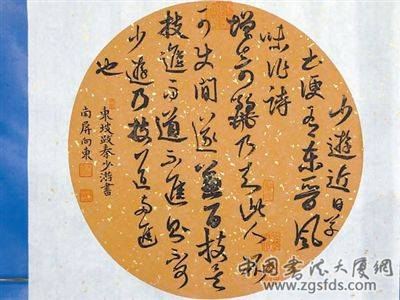 少遊近日草
书便有東晋風
味作詩
增奇麗乃知此人不
可使閒遂兼百技矣
技進而道不進則不可
少遊乃技道兩進
也
東坡跋秦少游書
南屏向東
中国书法大厦网
www.zgsfds.com